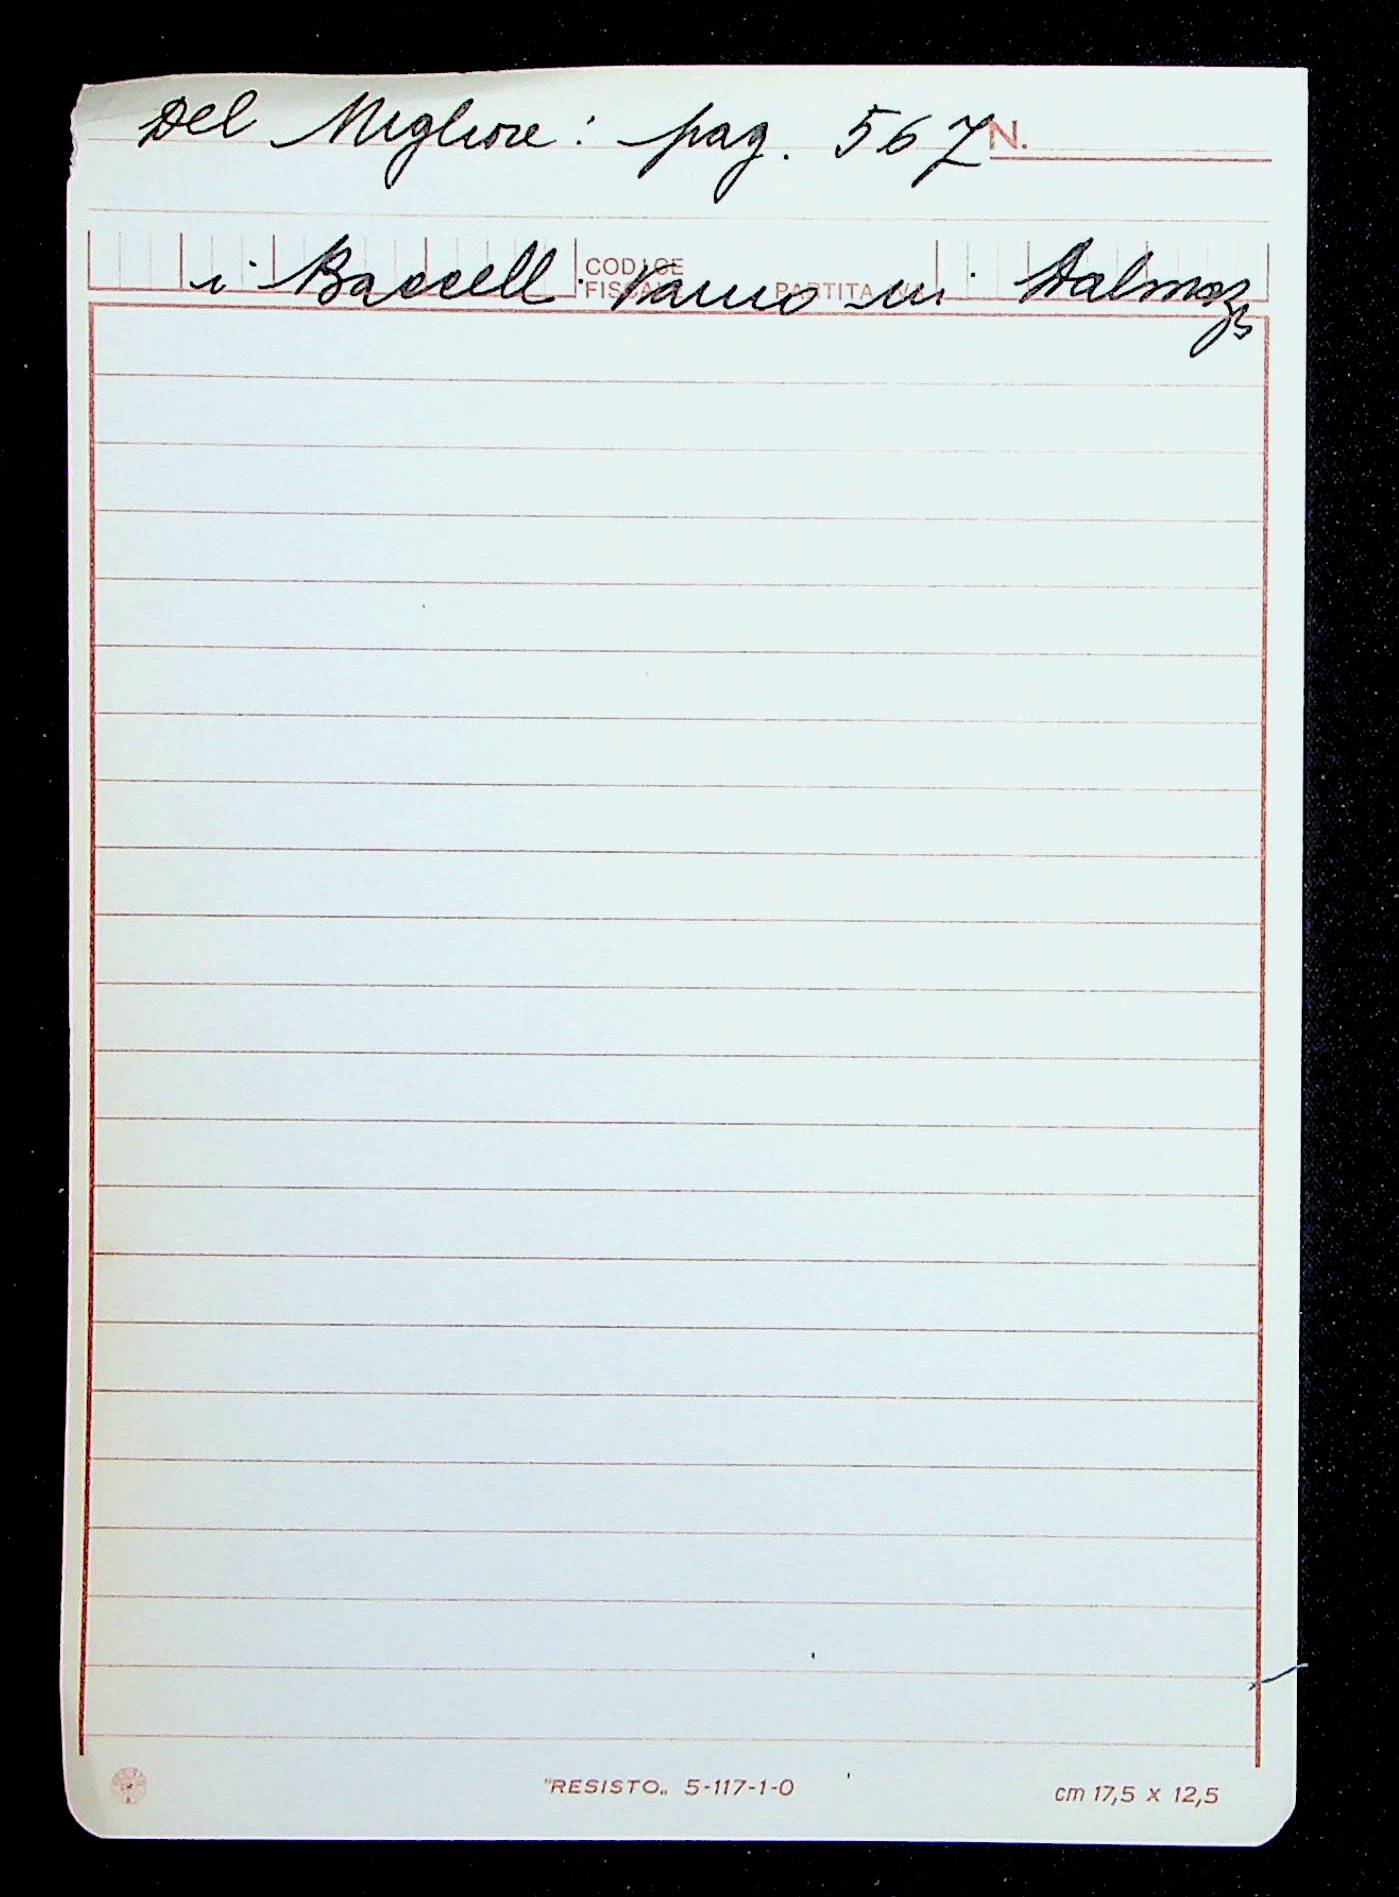 Del Migliore: pag. 567 N.
i Baccell. vanno in Dalmaz.
CODICE
FISCALE PARTITA IVA
"RESISTO„ 5-117-1-0 cm 17,5 x 12,5